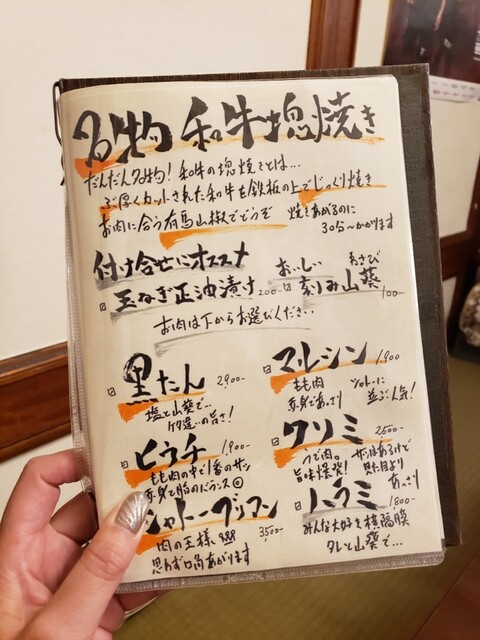 名物 和牛塊焼き
だんだん名物！和牛の塊焼きとは…
ぶ厚くカットされた和牛を鉄板の上でじっくり焼き
お肉に合う有馬山椒でどうぞ
焼きあがるのに
30分〜かかります
付け合せにオススメ
玉ねぎ正油漬け 200-
おいしい
わさび
刻み山葵 100-
お肉は下からお選びください‥
黒たん 2,900-
塩と山葵で…
ケタ違いの旨さ！
マルシン 1,900
もも肉
赤身であっさり
ヒレに
並ぶ人気！
ヒウチ 1,900-
もも肉の中で1番のサシ
赤身と脂のバランス◎
クリミ 2,500-
うで肉。
旨味爆発！
サシはあるけど
見た目より
あっさり
シャトーブリアン 3,500-
肉の王様
思わず口角あがります
ハラミ 1,800-
みんな大好き横隔膜
タレと山葵で…